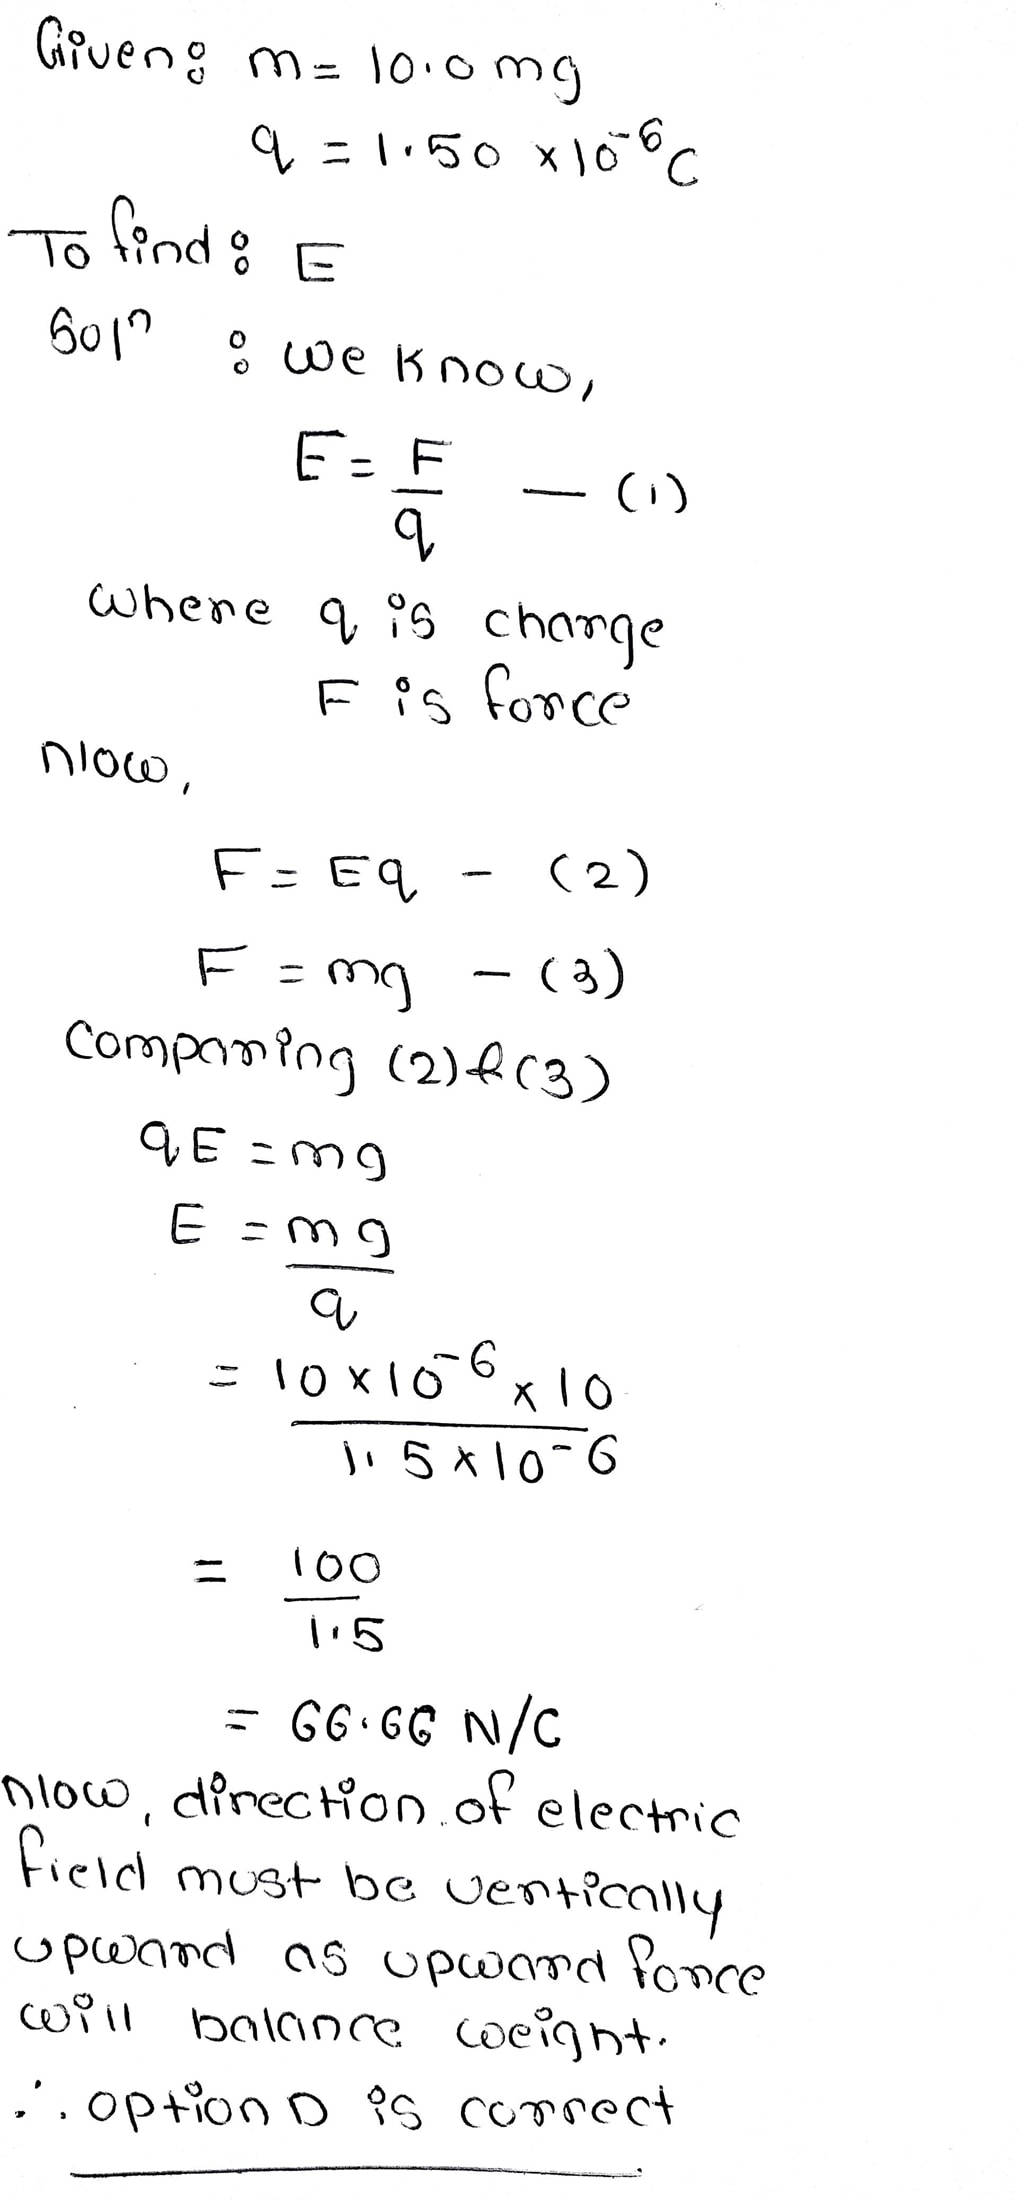 Given: m = 10.0 mg
q = 1.50 × 10⁻⁶ C
To find: E
Solⁿ : we know,
E = F/q — (1)
where q is charge
F is force
Now,
F = Eq - (2)
F = mg - (3)
Comparing (2) & (3)
qE = mg
E = mg/q
= 10 × 10⁻⁶ × 10 / 1.5 × 10⁻⁶
= 100/1.5
= 66.66 N/C
Now, direction of electric
field must be vertically
upward as upward force
will balance weight.
∴ option D is correct